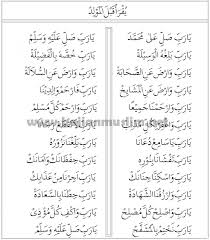 يُقْرَأُ قَبْلَ الْمَوْلِدِ
يَارَبِّ صَلِّ عَلَى مُحَمَّدْ يَارَبِّ صَلِّ عَلَيْهِ وَسَلِّمْ
يَارَبِّ بَلِّغْهُ الْوَسِيْلَةْ يَارَبِّ خُصَّهُ بِالْفَضِيْلَةْ
يَارَبِّ وَارْضَ عَنِ الصَّحَابَةْ يَارَبِّ وَارْضَ عَنِ السُّلَالَةْ
يَارَبِّ وَارْضَ عَنِ الْمَشَايِخْ يَارَبِّ فَارْحَمْ وَالِدِيْنَا
يَارَبِّ وَارْحَمْنَا جَمِيْعًا يَارَبِّ وَارْحَمْ كُلَّ مُسْلِمْ
يَارَبِّ يَارَبِّ
يَارَبِّ يَا سَامِعْ دُعَانَا يَارَبِّ بَلِّغْنَا نَزُوْرُهْ
يَارَبِّ تَغْشَانَا بِنُوْرِهْ يَارَبِّ حِفْظَانَكْ وَاَمَانَكْ
يَارَبِّ وَاسْكِنَّا جِنَانَكْ يَارَبِّ اَجِرْنَا مِنْ عَذَابِكْ
يَارَبِّ وَارْزُقْنَا الشَّهَادَةْ يَارَبِّ حِطْنَا بِالسَّعَادَةْ
يَارَبِّ وَاصْلِحْ كُلَّ مُصْلِحْ يَارَبِّ وَاكْفِ كُلَّ مُؤْذِيْ
يَارَبِّ نَخْتِمْ بِالْمُشَفَّعْ يَارَبِّ صَلِّ عَلَيْهِ وَسَلِّمْ